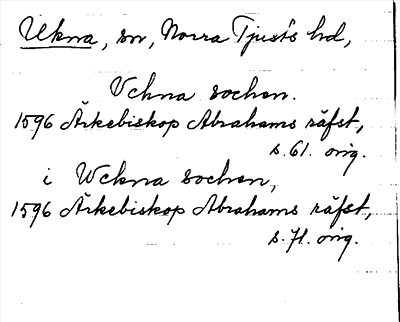 Ukna, sn, Norra Tjusts hd,
Vckna sochen.
1596 Ärkebiskop Abrahams räfst,
s. 61. orig.
i Wckna sochen,
1596 Ärkebiskop Abrahams räfst,
s. 71. orig.